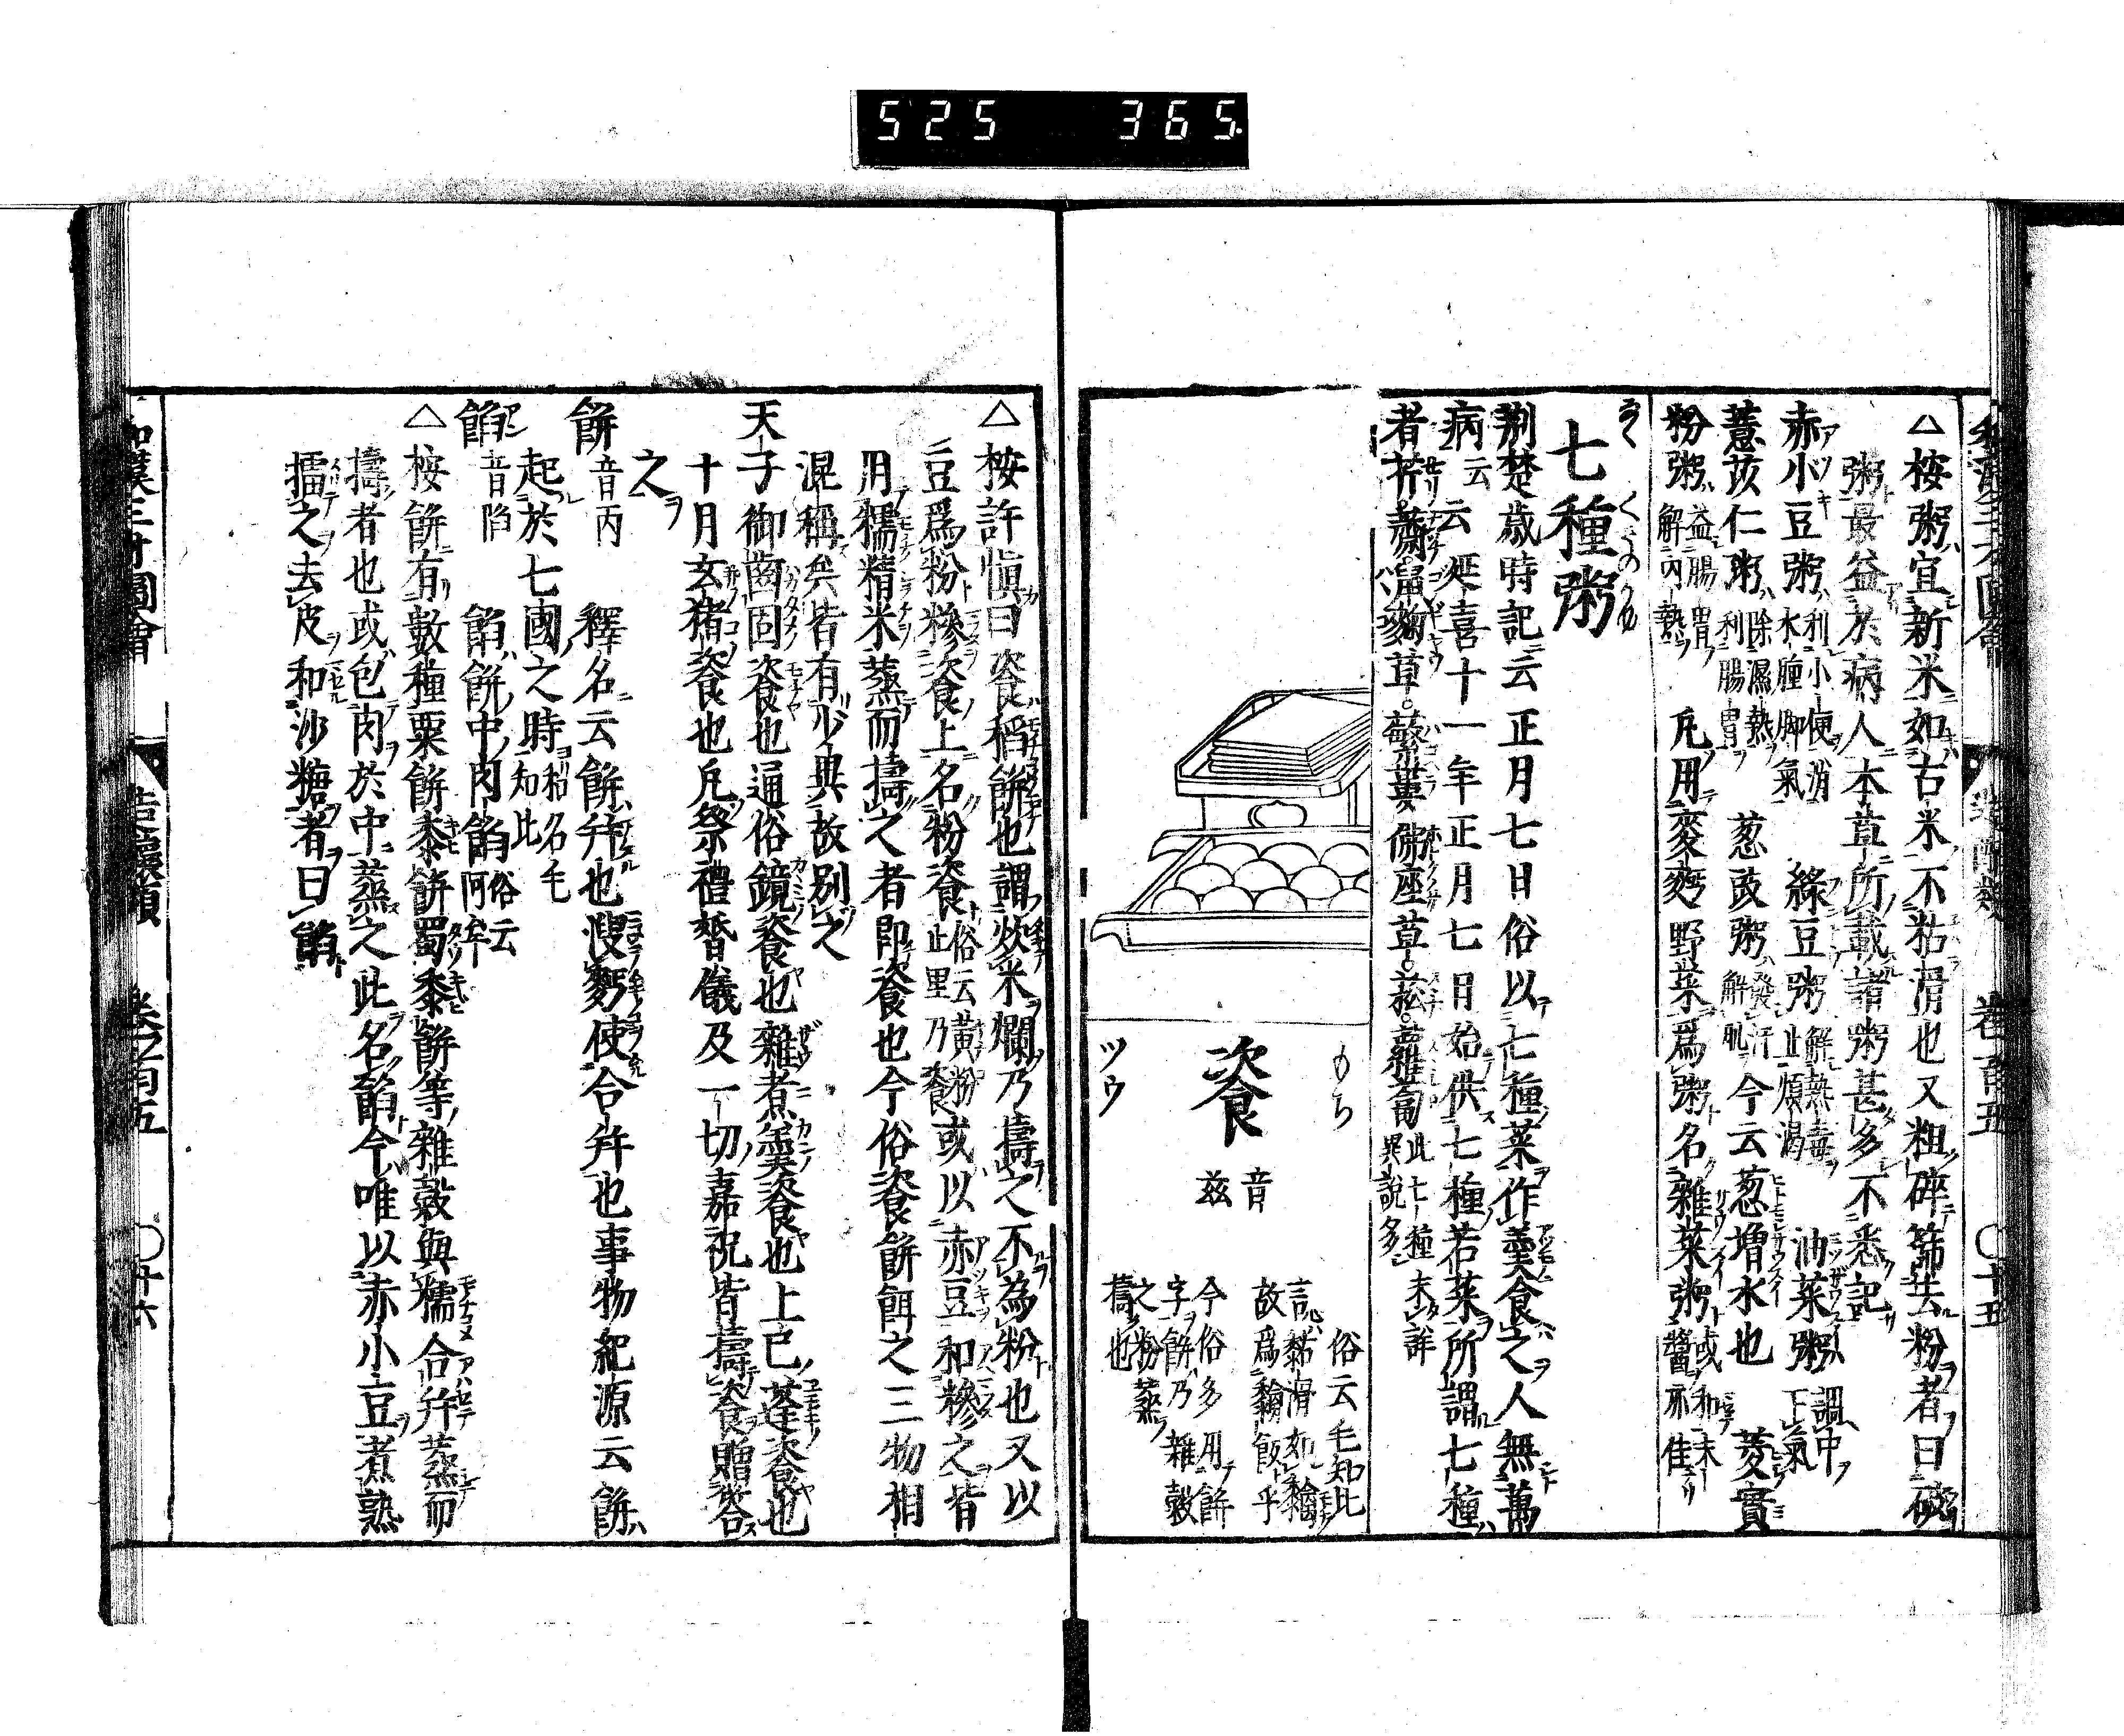 525 365
△桉粥宜新米如古米不粘滑也又粗碎篩去粉者曰
粥最益於病人本草所載諸粥甚多不悉記
赤小豆粥利小便消水腫脚氣 綠豆粥解熱毒止煩渴 油菜粥調中下氣
薏苡仁粥除濕熱利腸胃 葱豉粥發汗解肌今云葱增水也 菱實
粉粥益腸胃解內熱 凡用麥麪野菜爲粥名雜菜粥或和未醬亦佳
七種粥
荆楚歲時記云正月七日俗以七種菜作羹食之人無萬
病云云延喜十一年正月七日始供七種若菜所謂七種
者芹。薺。草。蘩蔞佛座草。菘。蘿蔔此七種異說多未詳
もち
餈 音兹
ツウ
俗云毛知比
言黏滑如黐
故爲黐飯乎
今俗多用餅
字餅乃雜穀
之粉蒸
擣也
△桉許愼曰餈稻餅也謂炊米爛乃擣之不為粉也又以
豆爲粉糝餈上名粉餈俗云黃粉止里乃餈或以赤豆和糝之皆
用糯精米蒸而擣之者卽餈也今俗餈餅餌之三物相
混稱矣皆有少異故別之
天子御齒固餈也通俗鏡餈也雜煮羹餈也上巳蓬餈也
十月玄猪餈也凡祭禮㛰儀及一切嘉祝皆擣餈贈荅
之
餅 音丙 釋名云餅幷也溲麪使合幷也事物紀源云餅
起於七國之時和名毛知比
餡 音陷 餡餅中肉餡俗云阿牟
△桉餅有數種粟餅黍餅蜀黍餅等雜穀與糯合幷蒸而
擣者也或包肉於中蒸之此名餡今唯以赤小豆煮熟
擂之去皮和沙糖者曰餡
和漢三才圖會 造釀類 卷之百五 〇十六